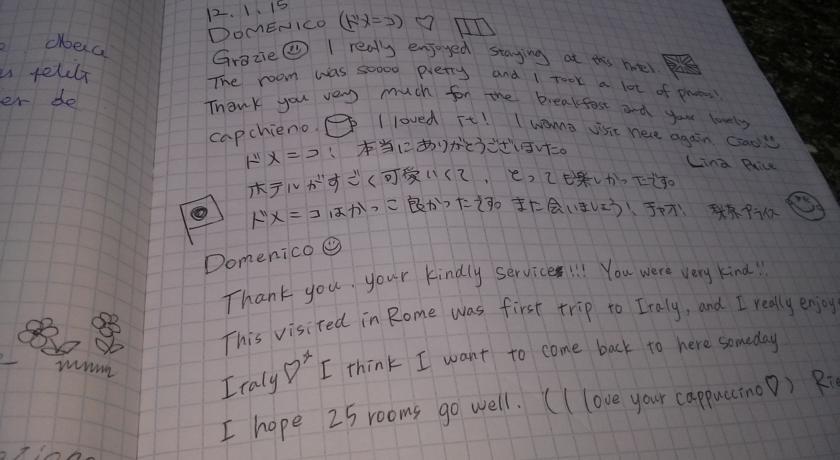 chera
petits
er de
mmm
12.1.15
DOMENICO (ドメニコ) ♡
Grazie ☺ I really enjoyed staying at this hotel.
The room was soooo pretty and I took a lot of photos!
Thank you very much for the breakfast and your lovely
capchieno. I loved it! I wanna visit here again Ciao!! ☺
Lina Price
ドメニコ! 本当にありがとうございました。
ホテルがすごく可愛いくて、とっても楽しかったです。
ドメニコはかっこ良かったです。また会いましょう! チャオ! プライス
Domenico ☺
Thank you. your kindly services!!! You were very kind!!
This visited in Rome was first trip to Italy, and I really enjoy
Italy ♡ I think I want to come back to here someday
I hope 25 rooms go well. (I love your cappuccino ♡) Rie